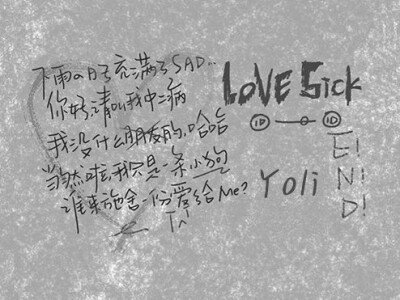 下雨の日子充满了SAD..
你好,请叫我中二病
我没什么朋友的,哈哈
当然啦,我只是一条小狗
谁来施舍一份爱给Me?
LOVE Sick
ID ID
Yoli
E!
N!
D!